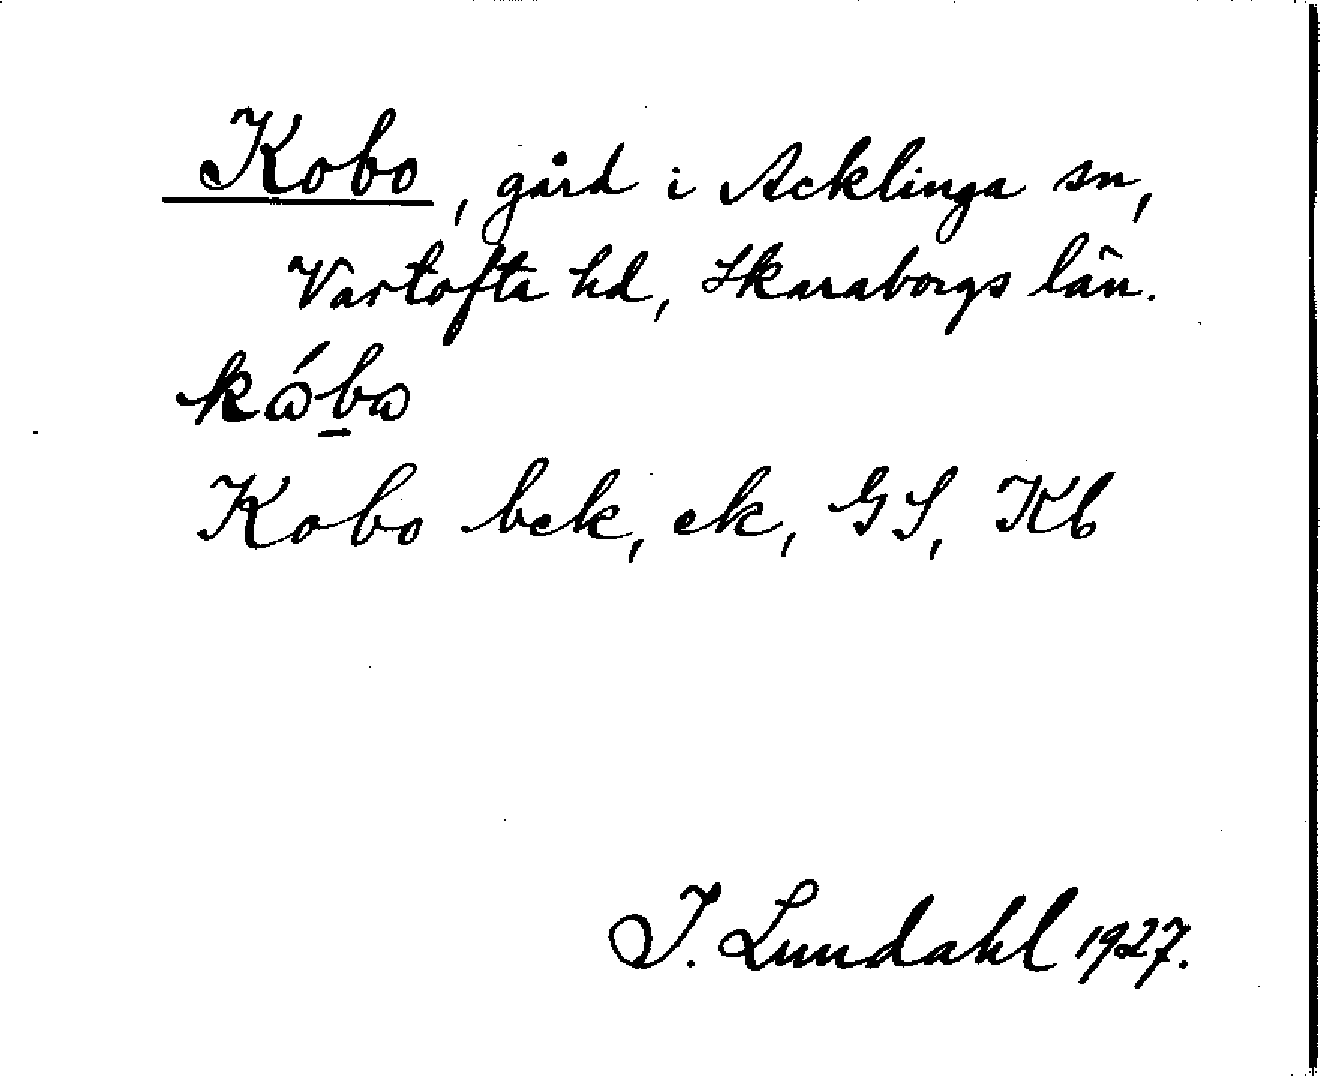 Kobo, gård i Acklinga sn,
Vartofta hd, Skaraborgs län.
Kobo bck, ek, GS, Kb
I. Lundahl 1927.